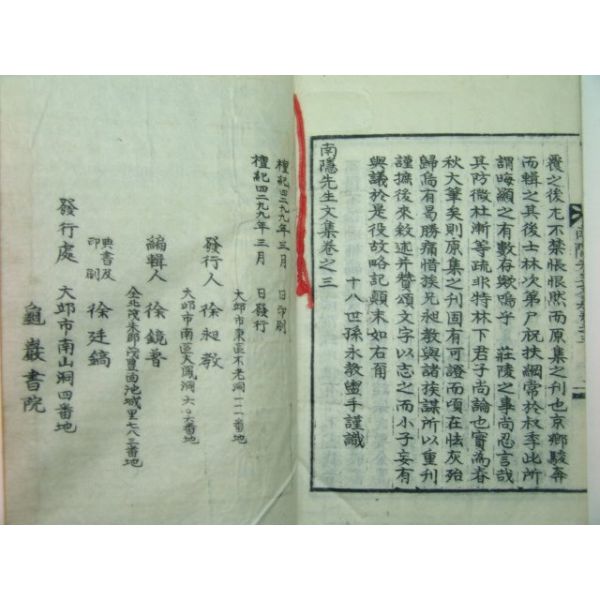 覆之後尤不禁悵恨然而原集之刋也京鄉駿奔
而輯之其後士林次第尸祝扶綱常於叔季此所
謂晦顯之有數存歟嗚乎 莊陵之事尚忍言哉
其防微杜漸等疏非特林下君子尚論也實為春
秋大筆矣則原集之刊固有可證而頃在怯灰殆
歸烏有曷勝痛惜族兄昶教與諸族謀所以重刊
謹摭後來敘述并贊頌文字以志之而小子妄有
與議於是役故略記顛末如右甭
十八世孫永教盥手謹識
南隱先生文集卷之三
檀紀四二九九年三月 日印刷
檀紀四二九九年三月 日發行
大邱市東區不老洞一二一番地
發行人 徐昶教
大邱市南區大鳳洞六〇六番地
編輯人 徐鏡普
全北茂朱郡茂豊面池城里七八三番地
典書及印刷 徐廷鎬
大邱市南山洞四番地
發行處 龜巖書院